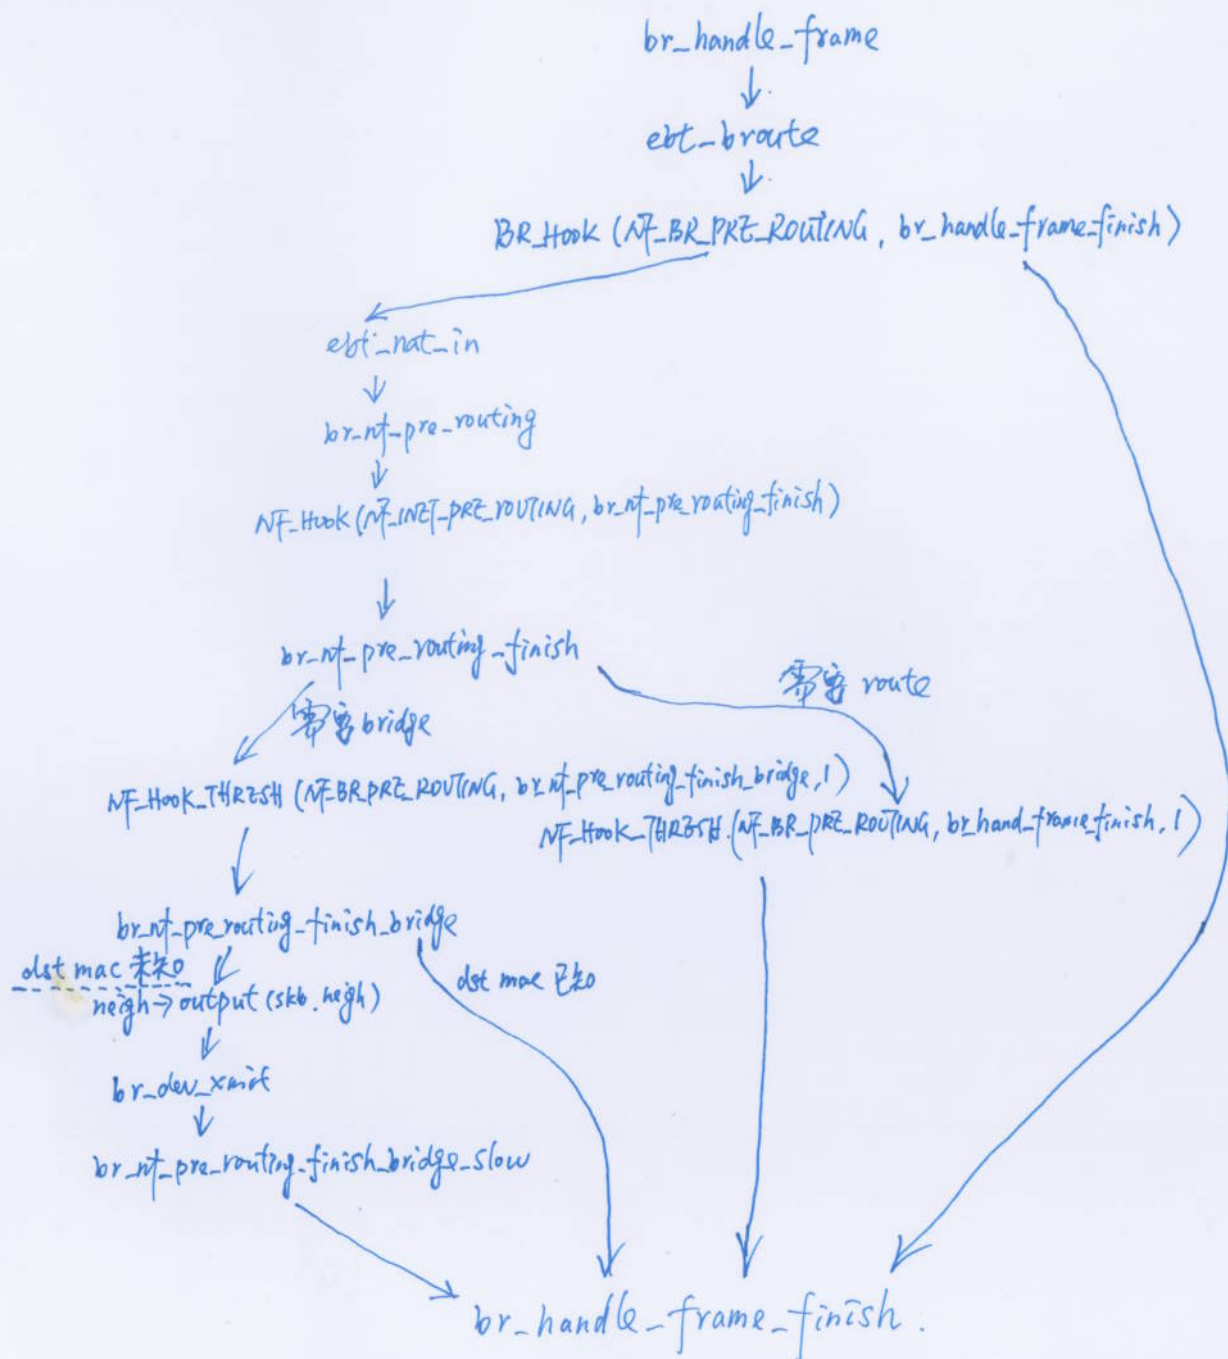 br_handle_frame
ebt_broute
BR_Hook (NF_BR_PRE_ROUTING, br_handle_frame_finish)
ebt_nat_in
br_nf_pre_routing
NF_Hook (NF_INET_PRE_ROUTING, br_nf_pre_routing_finish)
br_nf_pre_routing_finish
需要 route
需要 bridge
NF_Hook_THRESH (NF_BR_PRE_ROUTING, br_nf_pre_routing_finish_bridge, 1)
NF_Hook_THRESH. (NF_BR_PRE_ROUTING, br_hand_frame_finish, 1)
br_nf_pre_routing_finish_bridge
dst mac 未知
dst mac 已知
neigh→output (skb. neigh)
br_dev_xmit
br_nf_pre_routing_finish_bridge_slow
br_handle_frame_finish.